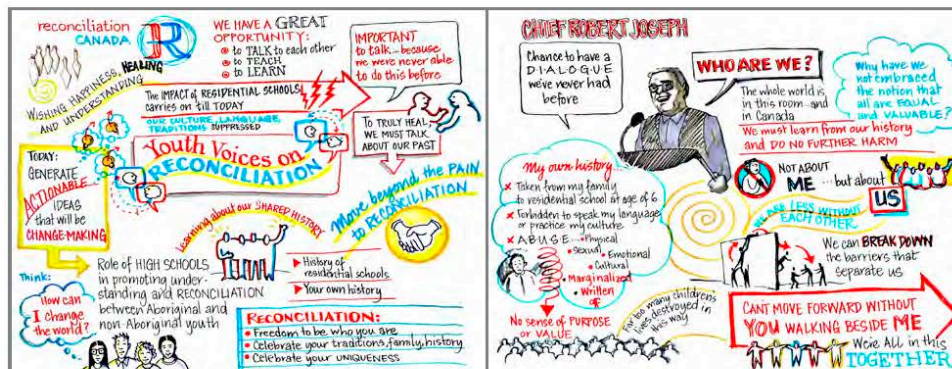 reconciliation
CANADA
R
WISHING HAPPINESS, HEALING
AND UNDERSTANDING
WE HAVE A GREAT
OPPORTUNITY:
to TALK to each other
to TEACH
to LEARN
IMPORTANT
to talk...because
we were never able
to do this before
The IMPACT of RESIDENTIAL SCHOOLS
carries on till TODAY
OUR CULTURE, LANGUAGE,
TRADITIONS SUPPRESSED
TO TRULY HEAL,
WE MUST TALK
ABOUT OUR PAST
Youth Voices on
RECONCILIATION
TODAY:
GENERATE
ACTIONABLE
IDEAS
that will be
CHANGE-MAKING
Move beyond the PAIN
to RECONCILIATION
Learning about our SHARED HISTORY
History of
residential schools
Your own history
Role of HIGH SCHOOLS
in promoting under-
standing and RECONCILIATION
between Aboriginal and
non-Aboriginal youth
Think:
How can
I change
the world?
RECONCILIATION:
Freedom to be who you are
Celebrate your traditions, family, history
Celebrate your UNIQUENESS
CHIEF ROBERT JOSEPH
Chance to have a
DIALOGUE
we've never had
before
WHO ARE WE?
The whole world is
in this room...and
in Canada
Why have we
not embraced
the notion that
all are EQUAL
and VALUABLE?
We must learn from our history
and DO NO FURTHER HARM
My own history
x Taken from my family
to residential school at age of 6
x Forbidden to speak my language
or practice my culture
x ABUSE... Physical
Sexual
Emotional
Cultural
Marginalized
Written off
No sense of PURPOSE
or VALUE
Far too many childrens
lives destroyed in
this way
NOT ABOUT
ME ...but about
US
WE ARE LESS WITHOUT
EACH OTHER
We can BREAK DOWN
the barriers that
separate us
CAN'T MOVE FORWARD WITHOUT
YOU WALKING BESIDE ME
We're ALL in this
TOGETHER